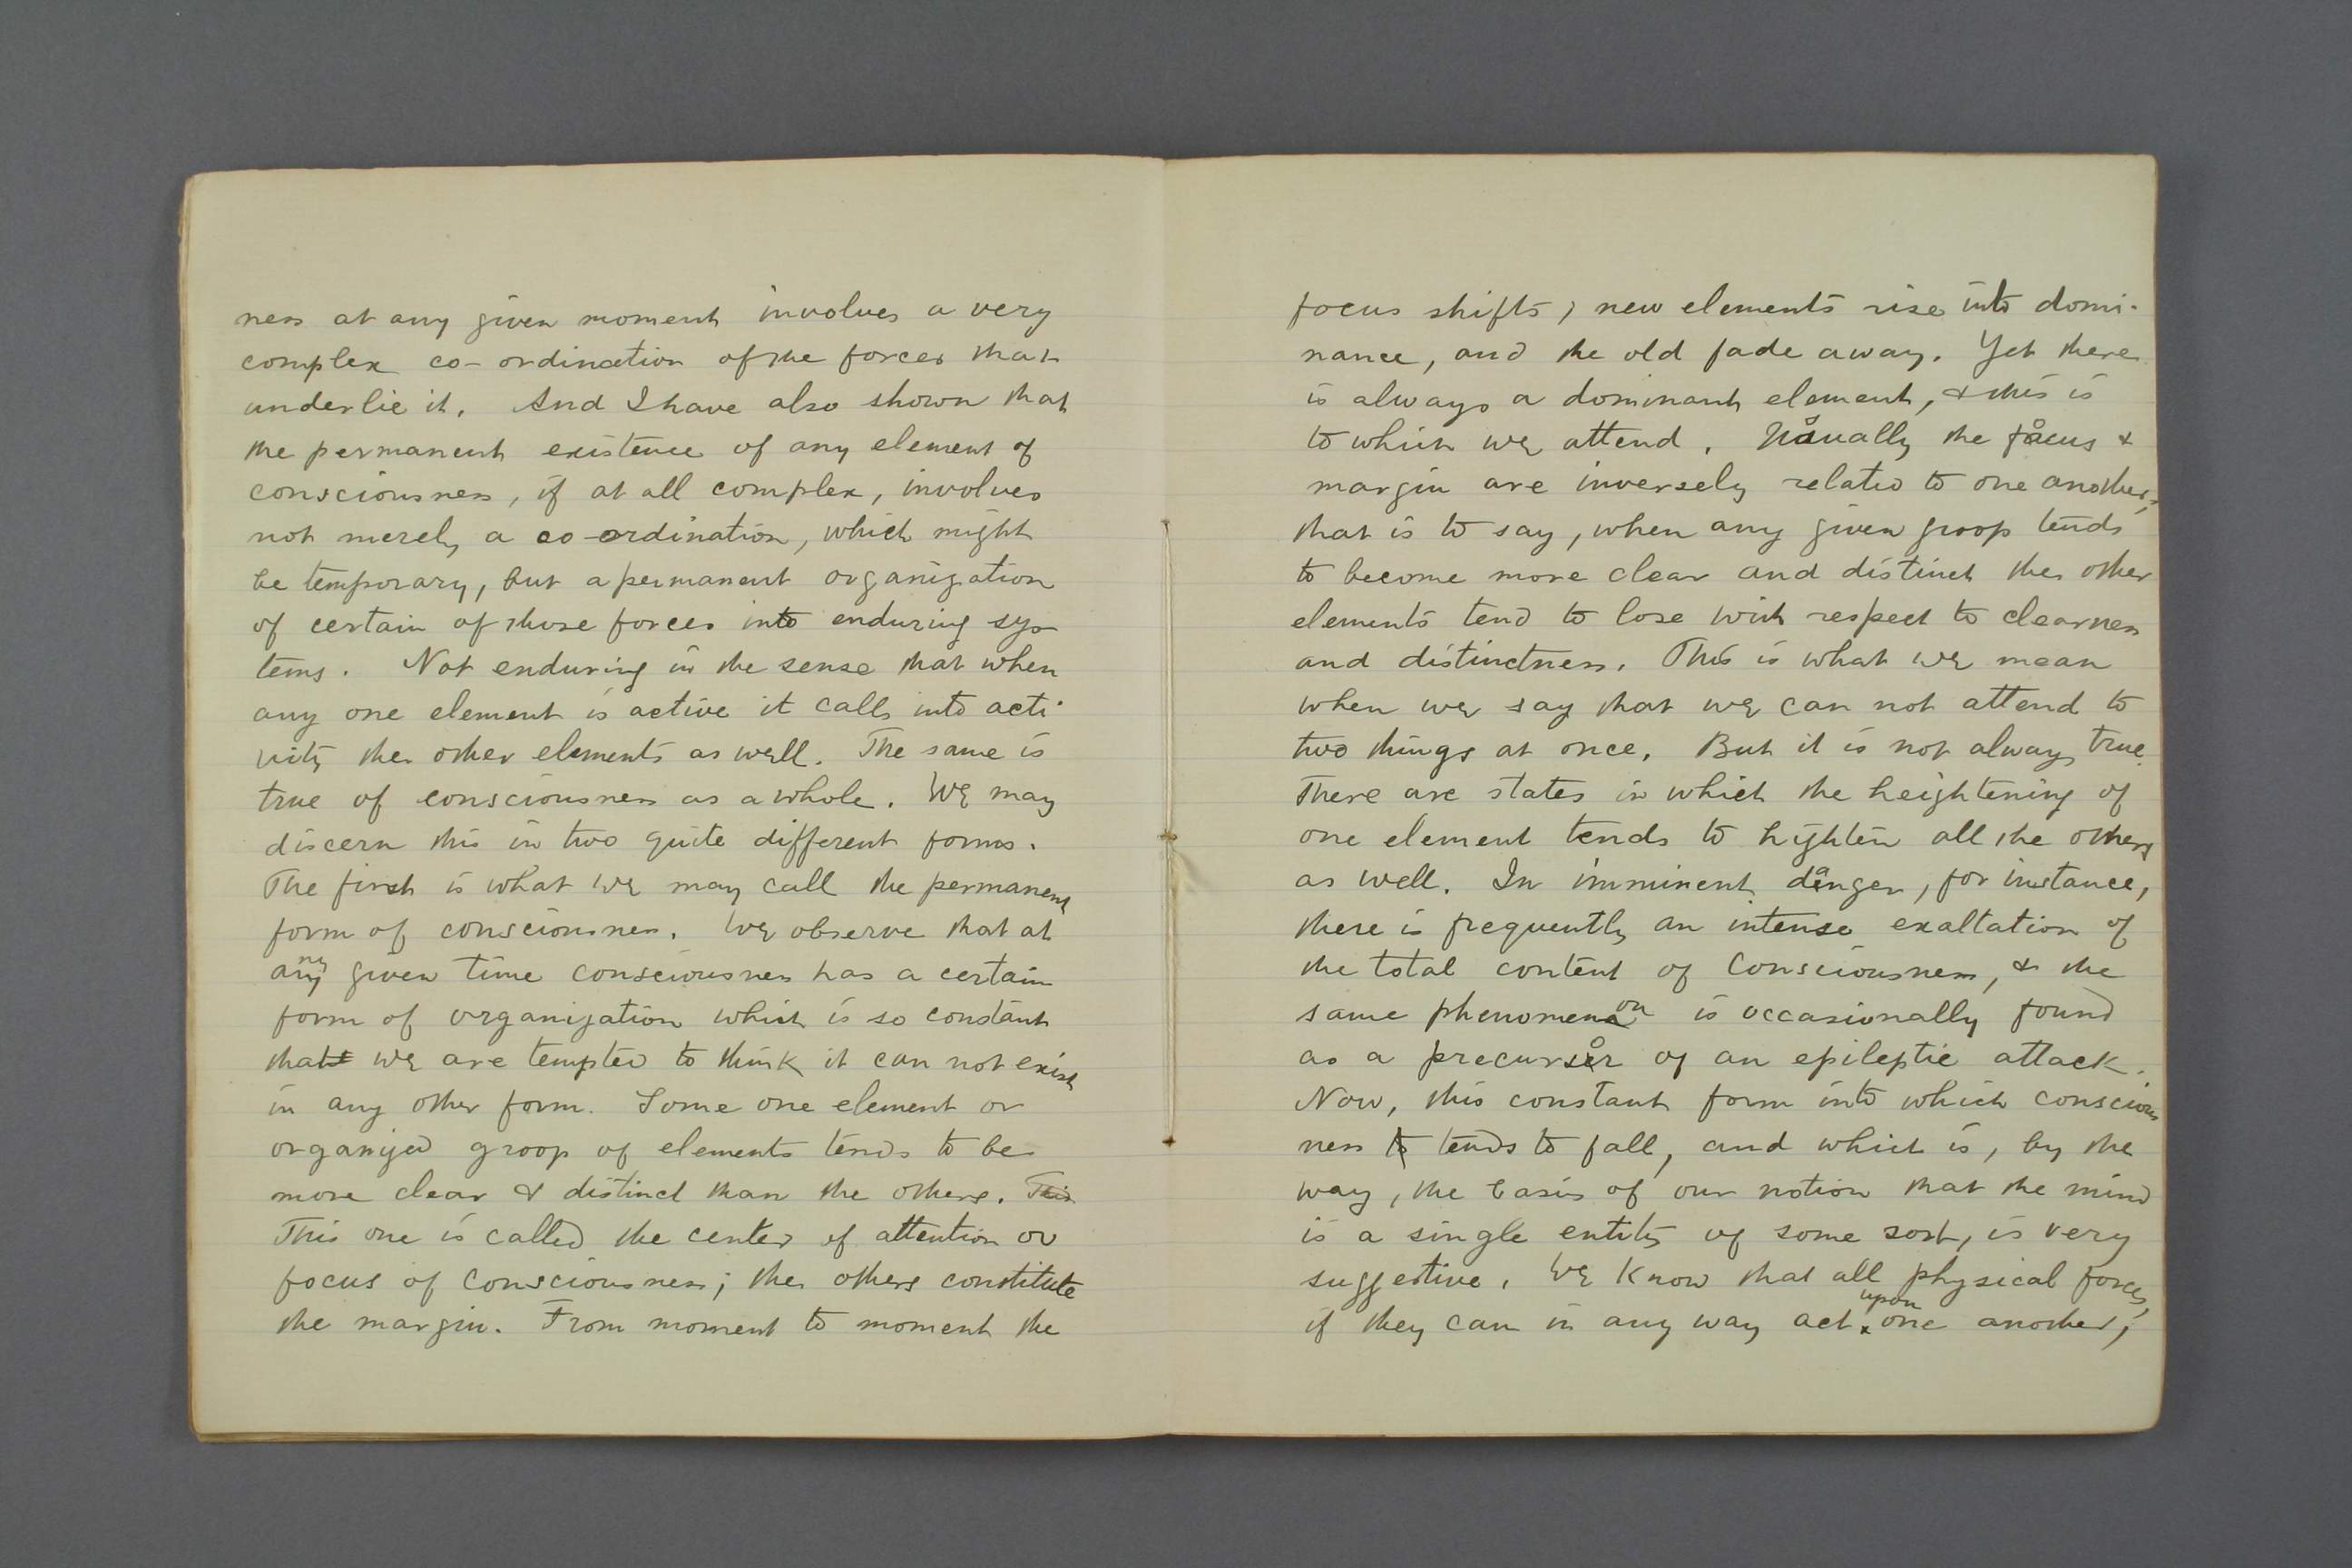 ness at any given moment involves a very
complex co-ordination of the forces that
underlie it. And I have also shown that
the permanent existence of any element of
consciousness, if at all complex, involves
not merely a co-ordination, which might
be temporary, but a permanent organization
of certain of those forces into enduring sys-
tems. Not enduring in the sense that when
any one element is active it calls into acti-
vity the other elements as well. The same is
true of consciousness as a whole. We may
discern this in two quite different forms.
The first is what we may call the permanent
form of consciousness. We observe that at
any given time consciousness has a certain
form of organization which is so constant
that we are tempted to think it can not exist
in any other form. Some one element or
organized groop of elements tends to be
more clear & distinct than the others. This
This one is called the center of attention or
focus of consciousness; the others constitute
the margin. From moment to moment the
focus shifts; new elements rise into domi-
nance, and the old fade away. Yet there
is always a dominant element, & this is
to which we attend. Usually the focus &
margin are inversely related to one another;
that is to say, when any given groop tends
to become more clear and distinct the other
elements tend to lose with respect to clearness
and distinctness. This is what we mean
when we say that we can not attend to
two things at once. But it is not always true.
There are states in which the heightening of
one element tends to highten all the others
as well. In imminent danger, for instance,
there is frequently an intense exaltation of
the total content of consciousness, & the
same phenomenon is occasionally found
as a precursor of an epileptic attack.
Now, this constant form into which conscious
ness to tends to fall, and which is, by the
way, the basis of our notion that the mind
is a single entity of some sort, is very
suggestive. We know that all physical forces,
if they can in any way act upon one another,